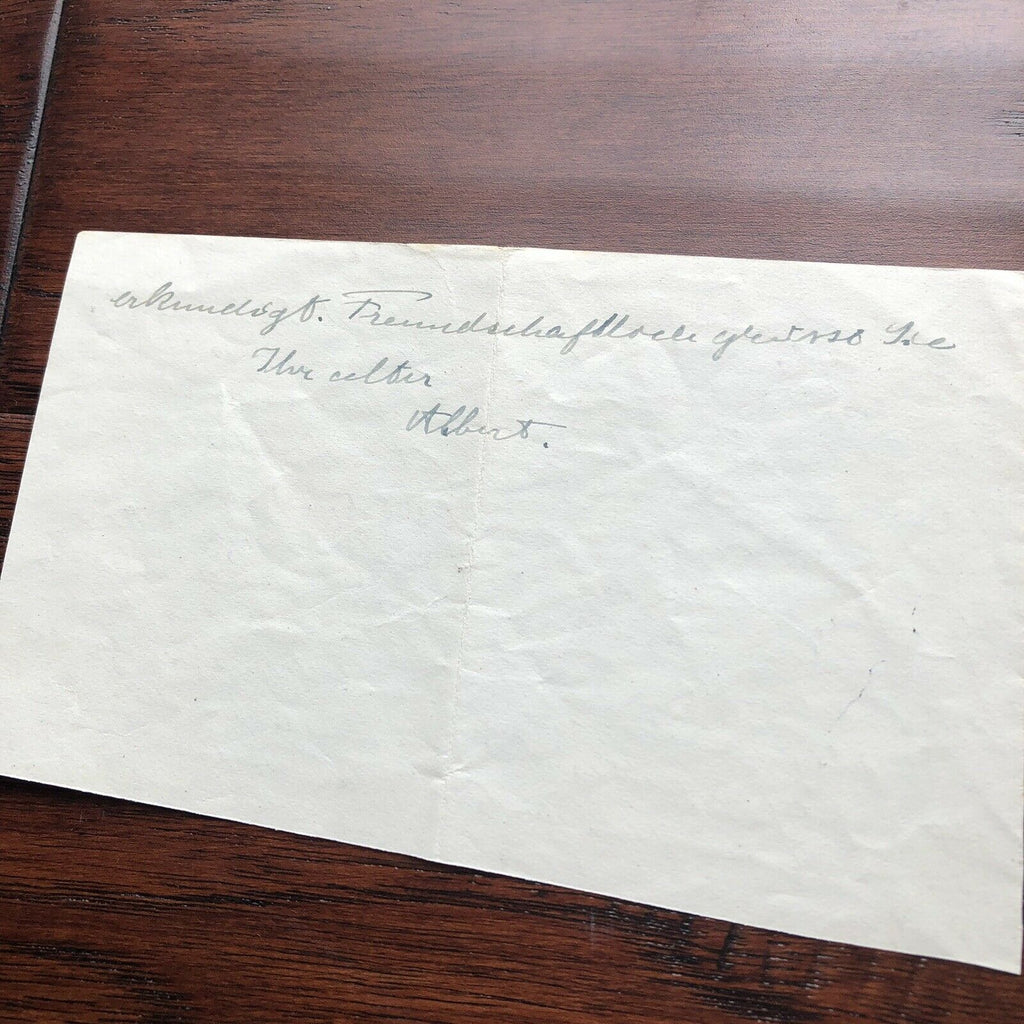 erkundigt. Freundschaftlich grüsst Sie
Ihr alter
Albert.